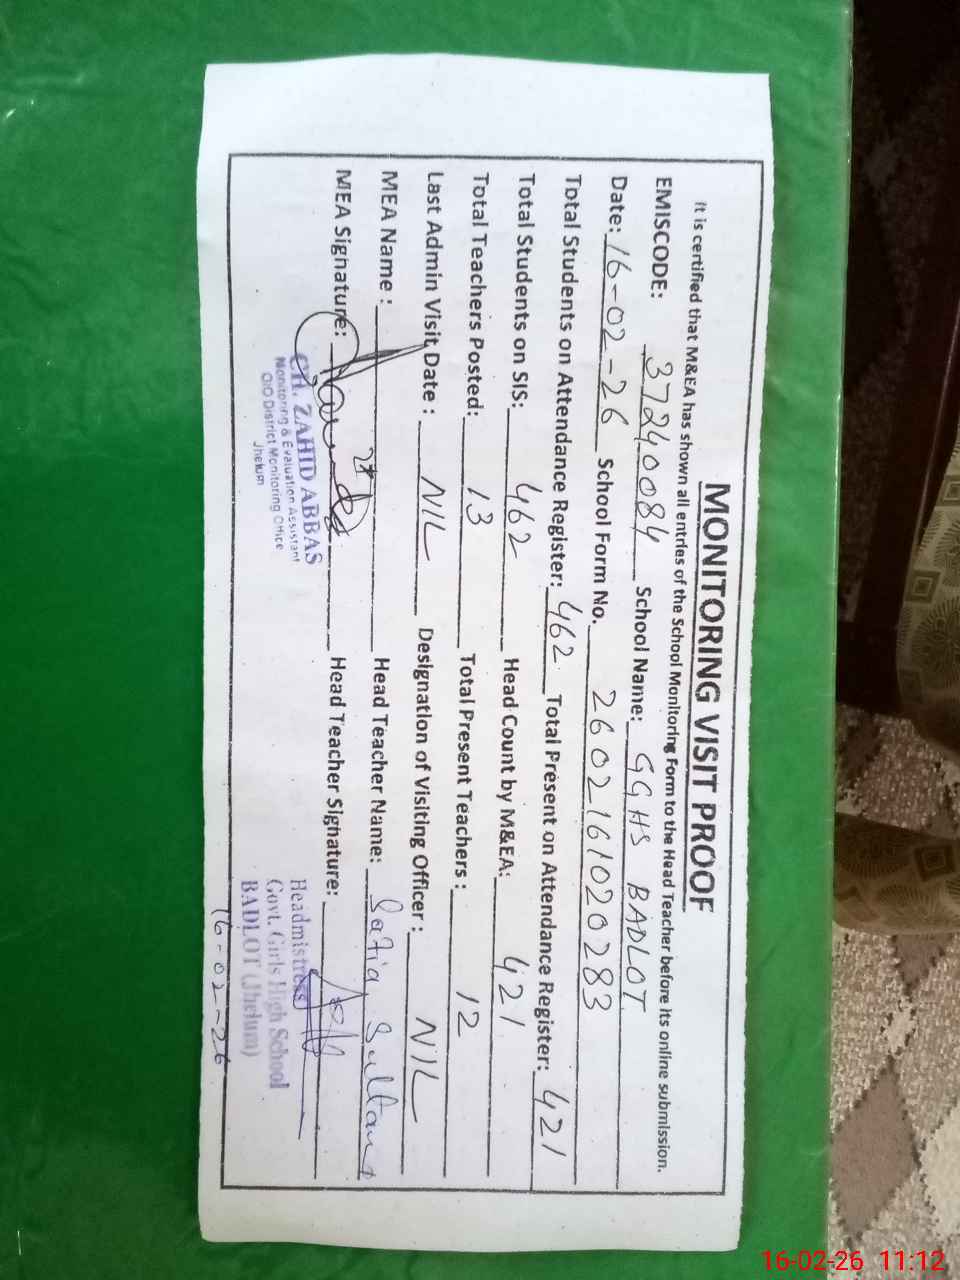 MONITORING VISIT PROOF
It is certified that M&EA has shown all entries of the School Monitoring Form to the Head Teacher before its online submission.
EMISCODE: 37240084 School Name: GGHS BADLOT
Date: 16-02-26 School Form No. 2602161020283
Total Students on Attendance Register: 462 Total Present on Attendance Register: 421
Total Students on SIS: 462 Head Count by M&EA: 421
Total Teachers Posted: 13 Total Present Teachers: 12
Last Admin Visit Date: NIL Designation of Visiting Officer: NIL
MEA Name: Head Teacher Name: Safia Sultana
MEA Signature: Head Teacher Signature:
CH. ZAHID ABBAS
Monitoring & Evaluation Assistant
O/O District Monitoring Office
Jhelum
Headmistress
Govt. Girls High School
BADLOT (Jhelum)
16-02-26
16-02-26 11:12